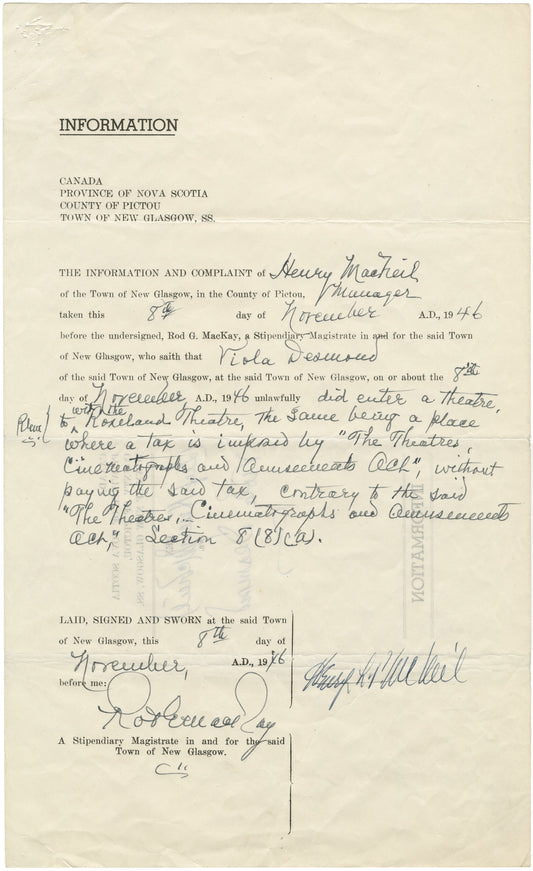 INFORMATION
CANADA
PROVINCE OF NOVA SCOTIA
COUNTY OF PICTOU
TOWN OF NEW GLASGOW, SS.
THE INFORMATION AND COMPLAINT of Henry MacNeil
of the Town of New Glasgow, in the County of Pictou, Manager
taken this 8th day of November A.D., 1946
before the undersigned, Rod G. MacKay, a Stipendiary Magistrate in and for the said Town
of New Glasgow, who saith that Viola Desmond
of the said Town of New Glasgow, at the said Town of New Glasgow, on or about the 8th
day of November, A.D., 1946 unlawfully did enter a theatre,
to with the Roseland Theatre, the same being a place
where a tax is imposed by "The Theatres,
Cinematographs and Amusements Act", without
paying the said tax, contrary to the said
"The Theatres, Cinematographs and Amusements
Act," Section 8 (8) (a).
LAID, SIGNED AND SWORN at the said Town
of New Glasgow, this 8th day of
November, A.D., 1946
before me:
A Stipendiary Magistrate in and for the said
Town of New Glasgow.
INFORMATION